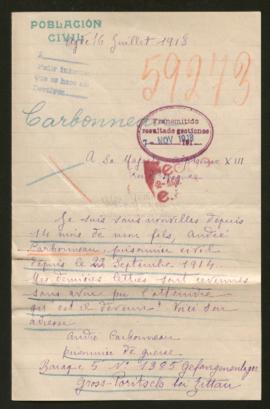 POBLACIÓN
CIVIL
Agde 16 Juillet 1918
59273
Carbonneau
Transmitido
resultado gestiones
7- NOV 1918
A Sa Majesté Alphonse XIII
Je suis sans nouvelles depuis
14 mois de mon fils, André
Carbonneau, prisonnier civil
depuis le 22 Septembre 1914.
Mes dernières lettres sont revenues
sans avoir pu l'atteindre
qu'est il devenu? Voici son
adresse
André Carbonneau
prisonnier de guerre
Baraque 5 N° 1385 Gefangenenlager
Gross-Poritsch bei Zittau